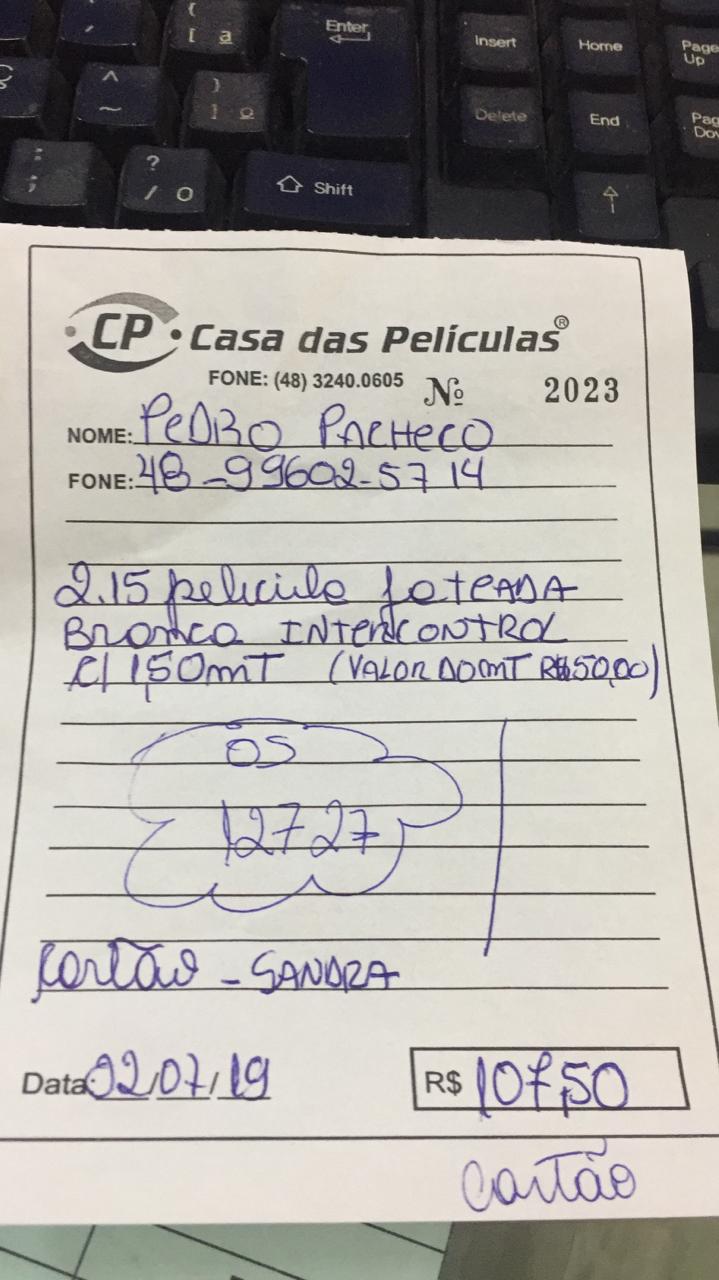 {
[ a
Enter
Insert
Home
Page
Up
^
~
}
] o
Delete
End
Pag
Do
:
;
?
/ O
Shift
CP Casa das Películas®
FONE: (48) 3240.0605 Nº 2023
NOME: PEDRO PACHECO
FONE: 48-99602-5714
2.15 película JateADA
Branca INTERCONTROL
C/ 1,50mT (VALOR DO MT R$50,00)
OS
12727
Cartão - SANDRA
Data: 02/07/19 R$ 107,50
Cartão